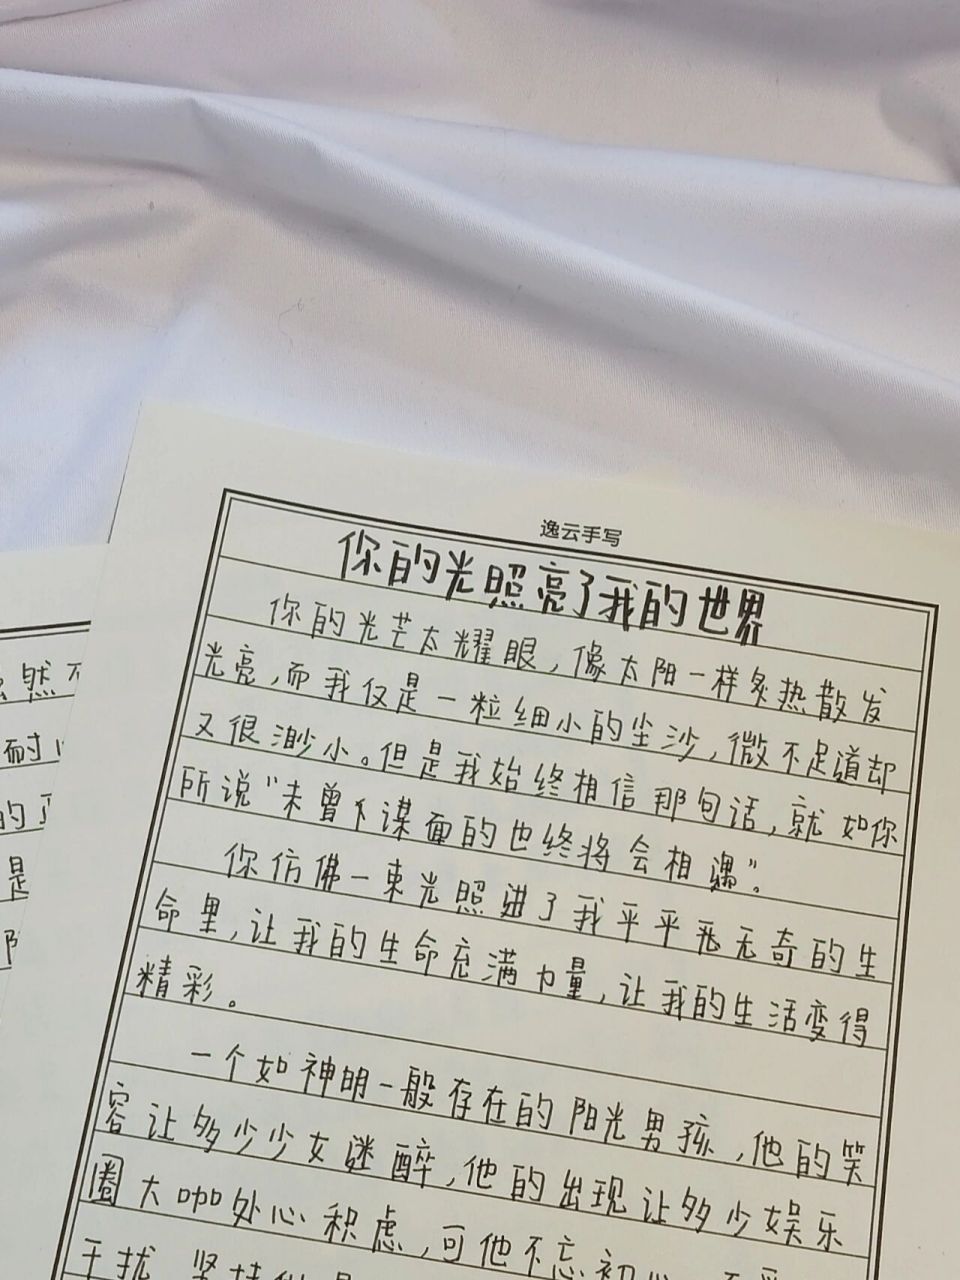 逸云手写
你的光照亮了我的世界
你的光芒太耀眼，像太阳一样炙热散发
光亮，而我仅是一粒细小的尘沙，微不足道却
又很渺小。但是我始终相信那句话，就如你
所说“未曾下谋面的也终将会相遇”。
你仿佛一束光照进了我平平无奇的生
命里，让我的生命充满力量，让我的生活变得
精彩。
一个如神明一般存在的阳光男孩，他的笑
容让多少少女迷醉，他的出现让多少娱乐
圈大咖处心积虑，可他不忘初心
干扰 坚持
然不
耐
的了
是